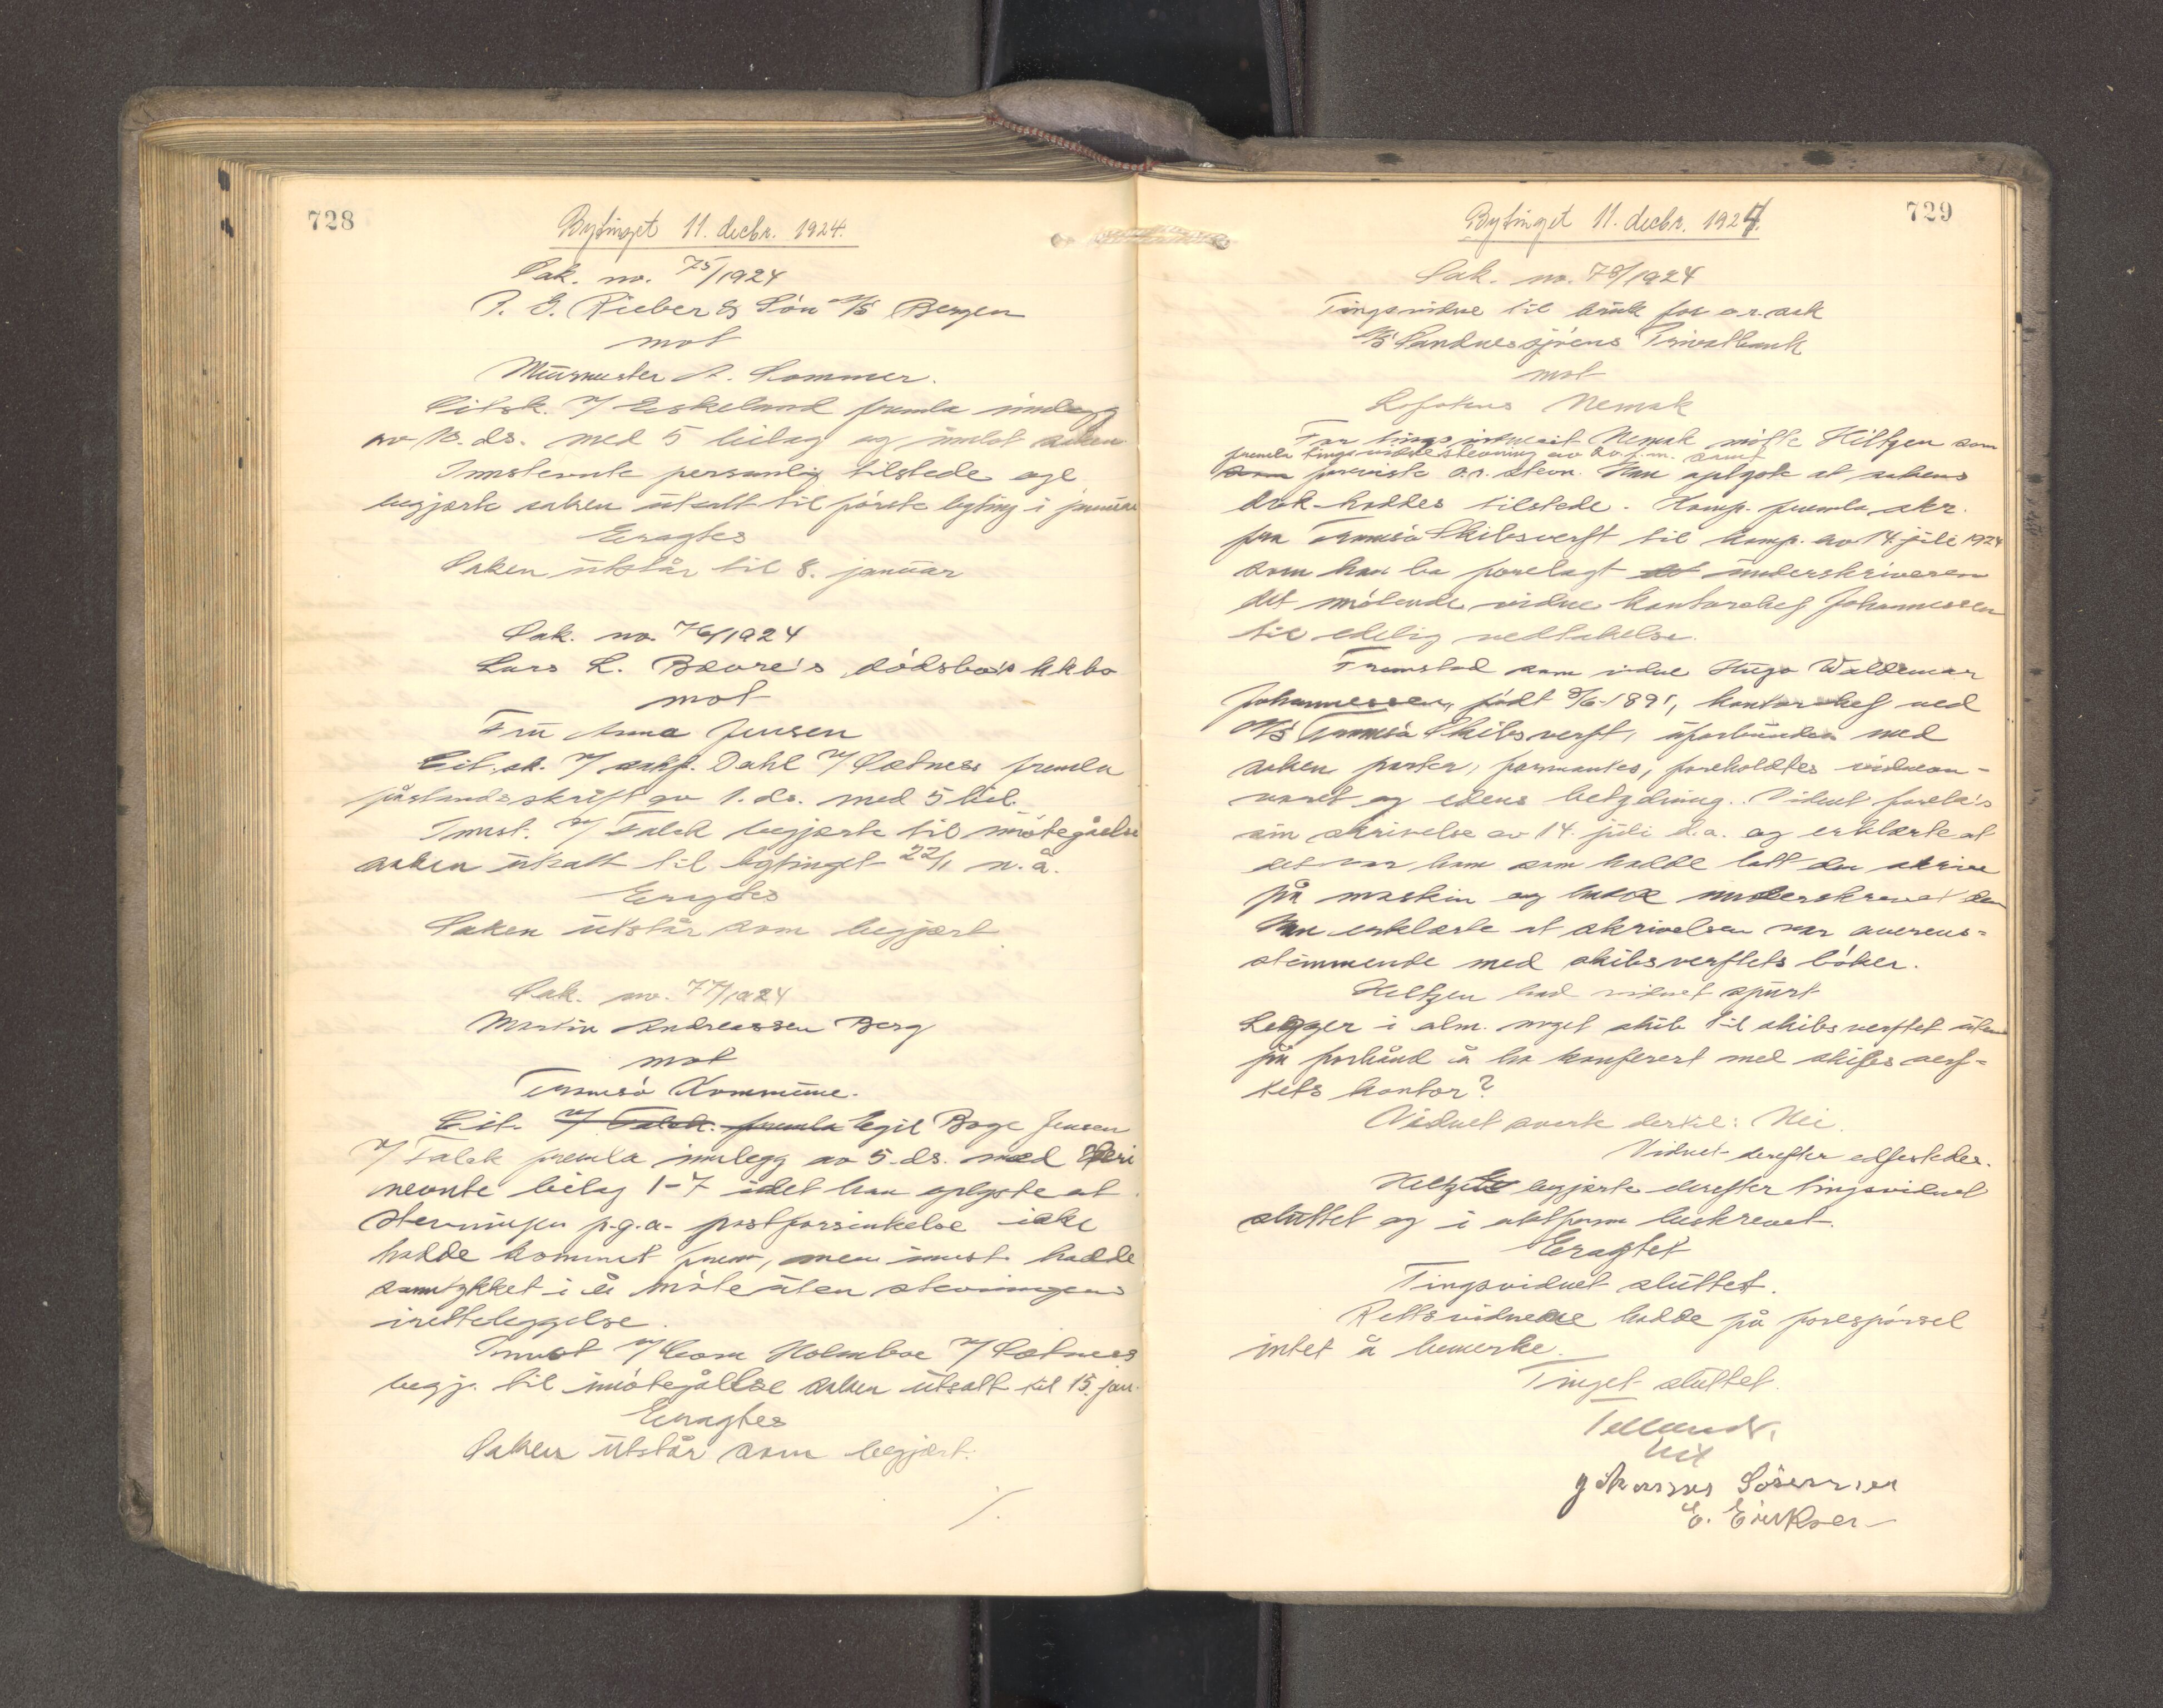 728
Bytinget 11. decbr. 1924.
Sak. no. 75/1924
P. G. Rieber & Sön A/S Bergen
mot
Murmester A. Sommer.
Cit.sk. v/ Eskeland fremla innlegg
av 10. ds. med 5 bilag og innlot saken
Innstevnte personlig tilstede
begjærte saken utsatt til første byting i januar
Eragtes
Saken utstår til 8. januar
Sak. no. 76/1924
Lars L. Bævre's dödsbo's kkbo
mot
Frü Anna Jensen
Cit.sk. v/ sakf. Dahl v/ Sætness fremla
påstandsskrift av 1. ds. med 5 bil.
Innst. v/ Falck begjærte til imötegåelse
saken utsatt til bytinget 22/1 n.å.
Eragtes
Saken utstår som begjært
Sak. no. 77/1924
Martin Andreassen Berg
mot
Tromsö Kommune.
Cit. v/ Falck. fremla Egil Boge Jensen
v/ Falck fremla innlegg av 5. ds. med deri
nevnte bilag 1-7 idet han oplyste at
stevningen p.g.a. postforsinkelse ikke
hadde kommet frem, men innst. hadde
samtykket i å möte uten stevningens
iretteleggelse.
Innst v/ Holmboe v/ Sætness
begj. til imötegåelse saken utsatt til 15. jan.
Eragtes
Saken utstår som begjært.
/.
729
Bytinget 11. decbr. 1924.
Sak. no. 78/1924
Tingsvidne til bruk for o.r.sak
A/S Sandnessjöens Privatbank
mot
Lofotens Nemak
For tingsvidnecit. Nemak mötte Hiltzen som
fremla tingsvidnestevning av 20. f.m. samt
som foreviste o.r. stevn. Han oplyste at sakens
dok. hadtes tilstede. Komp. fremla skr.
fra Tromsö Skibsverft til komp. av 14. juli 1924
som han ba forelagt det underskriveren
det mötende vidne kontorchef Johannessen
til edelig vedtakelse.
Fremstod som vidne Hugo Waldemar
Johannessen, födt 9/6-1891, kontorchef ved
A/S Tromsö Skibsverft, uforbunden med
saken parter, formantes, foreholdtes vidnean-
svaret og edens betydning. Vidnet forela's
sin skrivelse av 14. juli d.a. og erklærte at
det var ham som hadde latt den skrive
på maskin og hadde underskrevet den
Han erklærte at skrivelsen var overens-
stemmende med skibsverftets böker.
Heltzen bad vidnet spurt
Legger i alm. noget skib til skibsverftet uten
på forhånd å ha konferert med skibsverf-
tets kontor?
Vidnet svarte dertil: Nei.
Vidnet derefter edfestedes.
Heltzen begjærte derefter tingsvidnet
sluttet og i aktform beskrevet.
Eragtet
Tingsvidnet sluttet.
Rettsvidnene hadde på forespörsel
intet å bemerke.
Tinget sluttet.
Johannes Sörensen
E. Erikser